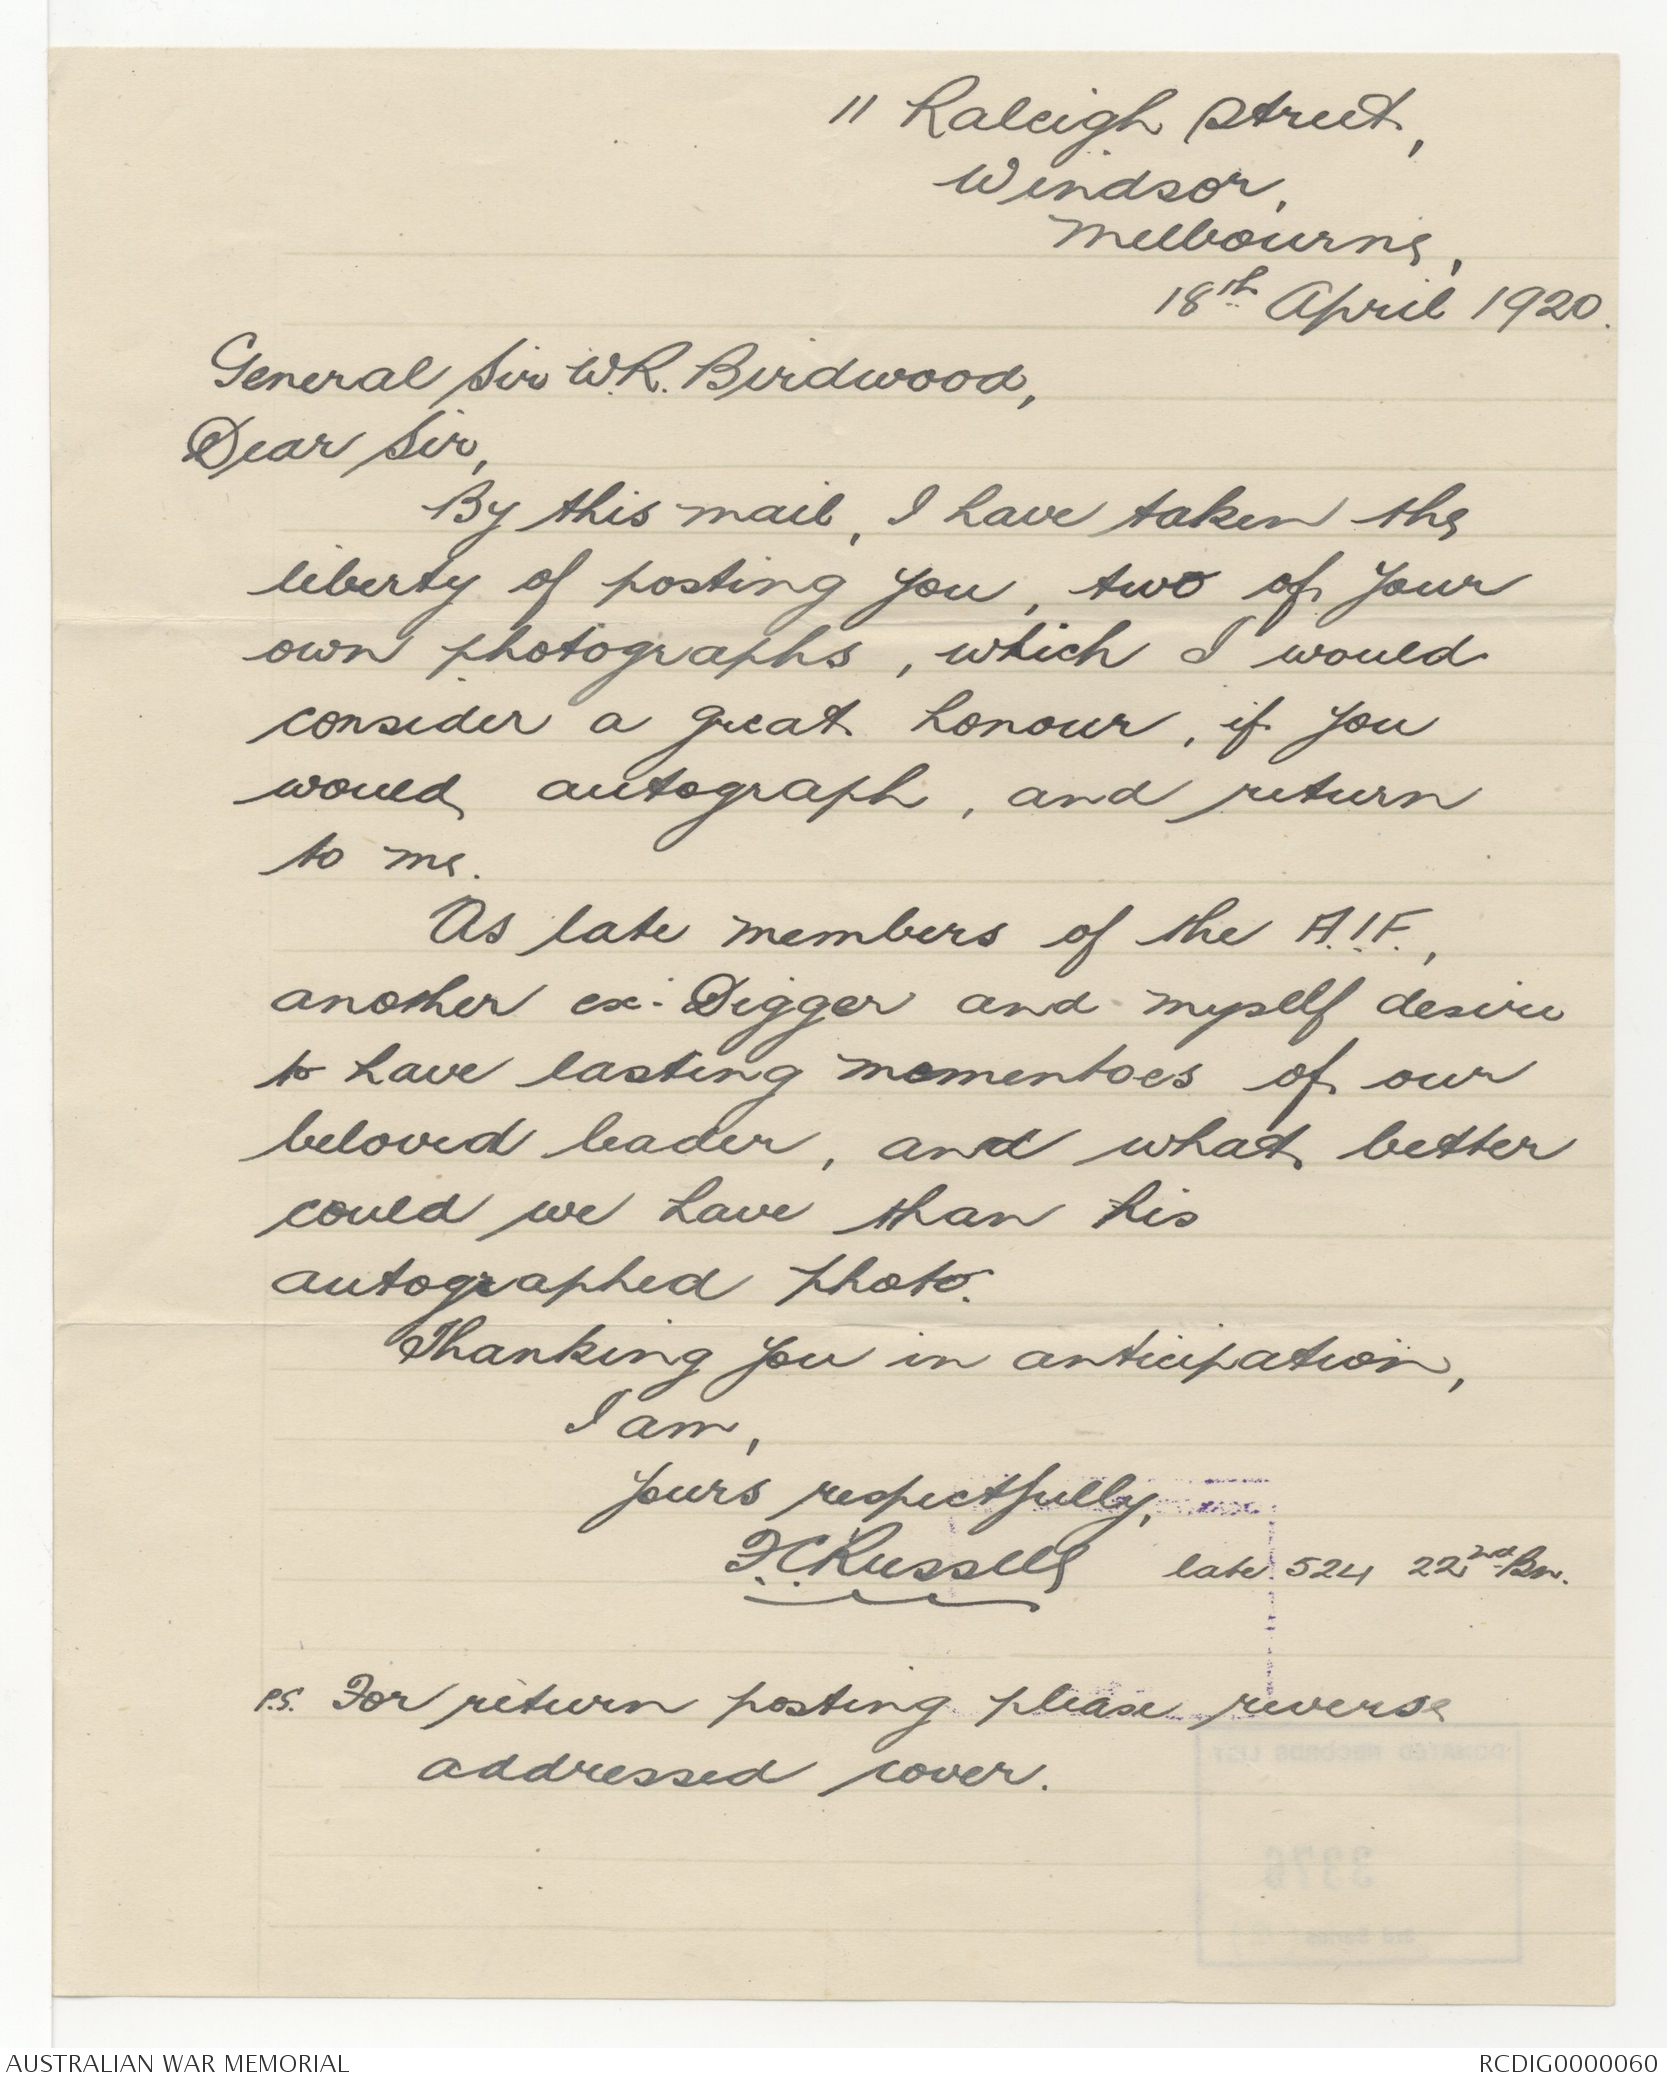 11 Raleigh Street,
Windsor,
Melbourne,
18th April 1920.
General Sir W.R. Birdwood,
Dear Sir,
By this mail, I have taken the
liberty of posting you, two of your
own photographs, which I would
consider a great honour, if you
would autograph, and return
to me.
As late members of the A.I.F.,
another ex-Digger and myself desire
to have lasting momentoes of our
beloved leader, and what better
could we have than his
autographed photo.
Thanking you in anticipation,
I am,
Yours respectfully,
F.C. Russell late 524 22nd Bn.
P.S. For return posting please reverse
addressed cover.
DONATED RECORDS LIST
3376
3rd Series
AUSTRALIAN WAR MEMORIAL
RCDIG0000060